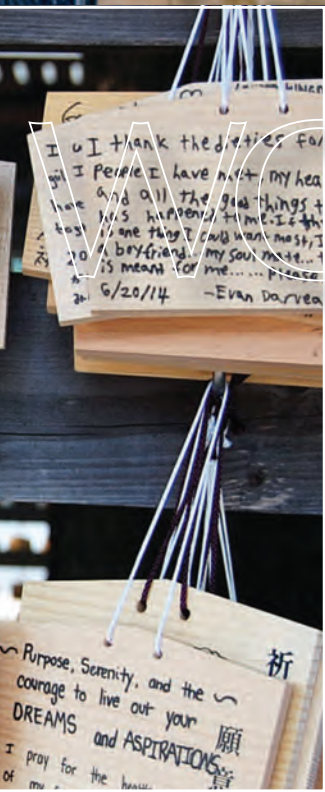 WO
I thank the dieties for
People I have met, my hea
and all the good things t
has happened to me. If th
is one thing I could want most, I
boyfriend... my soul mate... t
is meant for me...... Please
6/20/14 -Evan Darvea
~ Purpose, Serenity, and the ~
courage to live out your
DREAMS and ASPIRATIONS
I pray for the health
of my
祈
願
意